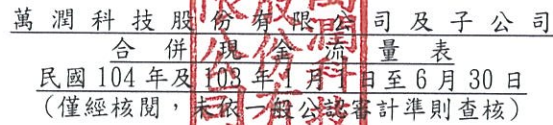 萬潤科技股份有限公司及子公司
合併現金流量表
民國 104 年及 103 年 1 月 1 日至 6 月 30 日
(僅經核閱，未依一般公認審計準則查核)